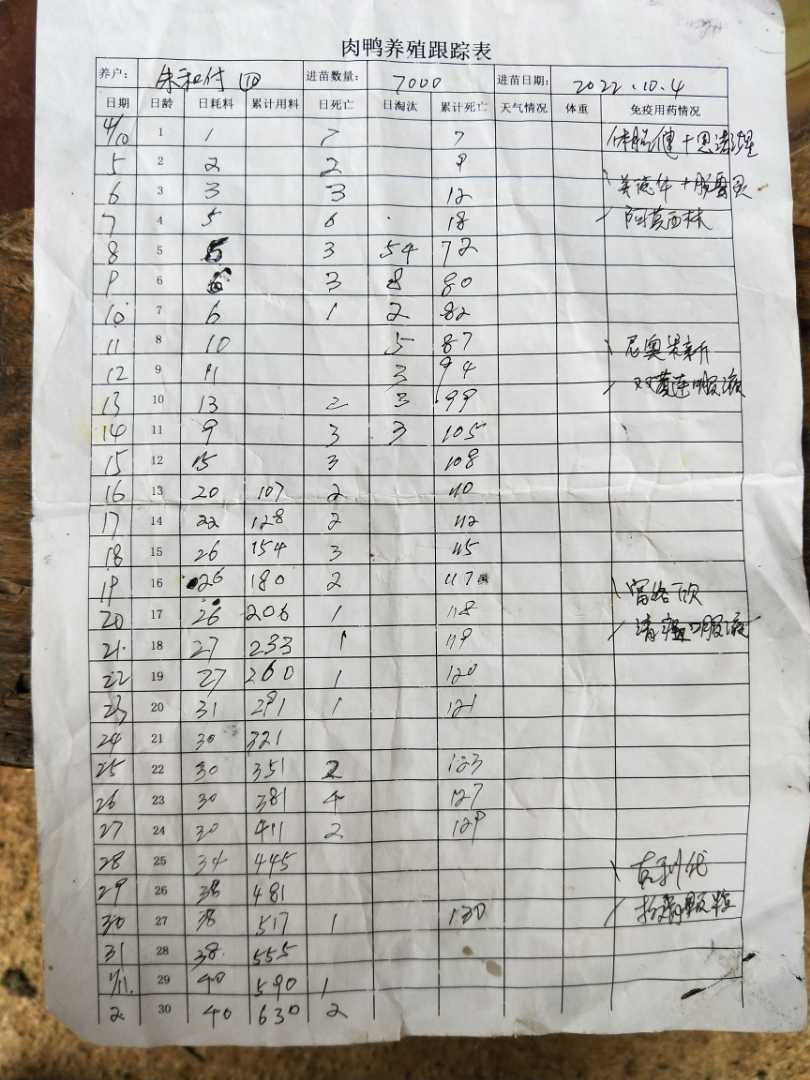 肉鸭养殖跟踪表
养户: 朱和付 四 进苗数量: 7000 进苗日期: 2022.10.4
日期 日龄 日耗料 累计用料 日死亡 日淘汰 累计死亡 天气情况 体重 免疫用药情况
4/10 1 1 7 7
5 2 2 2 9
6 3 3 3 12
7 4 5 6 18 阿莫西林
8 5 6 3 54 72
9 6 6 3 8 80
10 7 6 1 2 82
11 8 10 5 87
12 9 11 3 94 双黄连口服液
13 10 13 2 3 99
14 11 9 3 3 105
15 12 15 3 108
16 13 20 107 2 110
17 14 22 128 2 112
18 15 26 154 3 115
19 16 26 180 2 117
20 17 26 206 1 118
21 18 27 233 1 119 口服液
22 19 27 260 1 120
23 20 31 291 1 121
24 21 30 321
25 22 30 351 2 123
26 23 30 381 4 127
27 24 30 411 2 129
28 25 34 445
29 26 38 481
30 27 38 517 1 130 颗粒
31 28 38 555
1/11 29 40 590 1
2 30 40 630 2